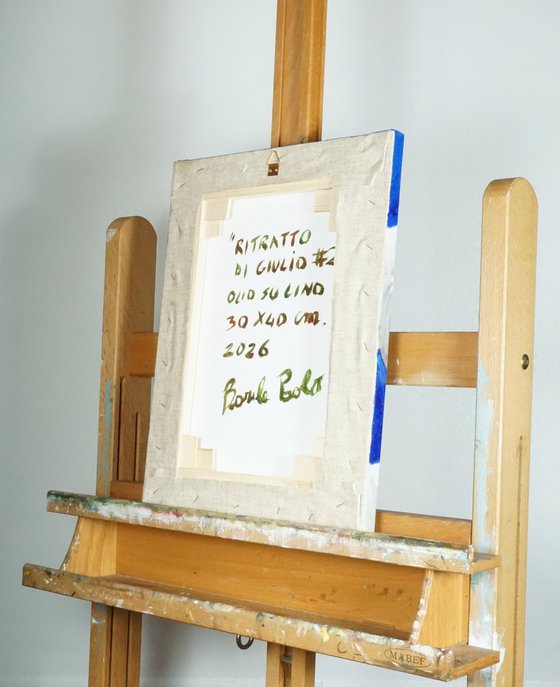 "RITRATTO
DI GIULIO #2
OLIO SU LINO
30 X 40 cm.
2026
MABEF